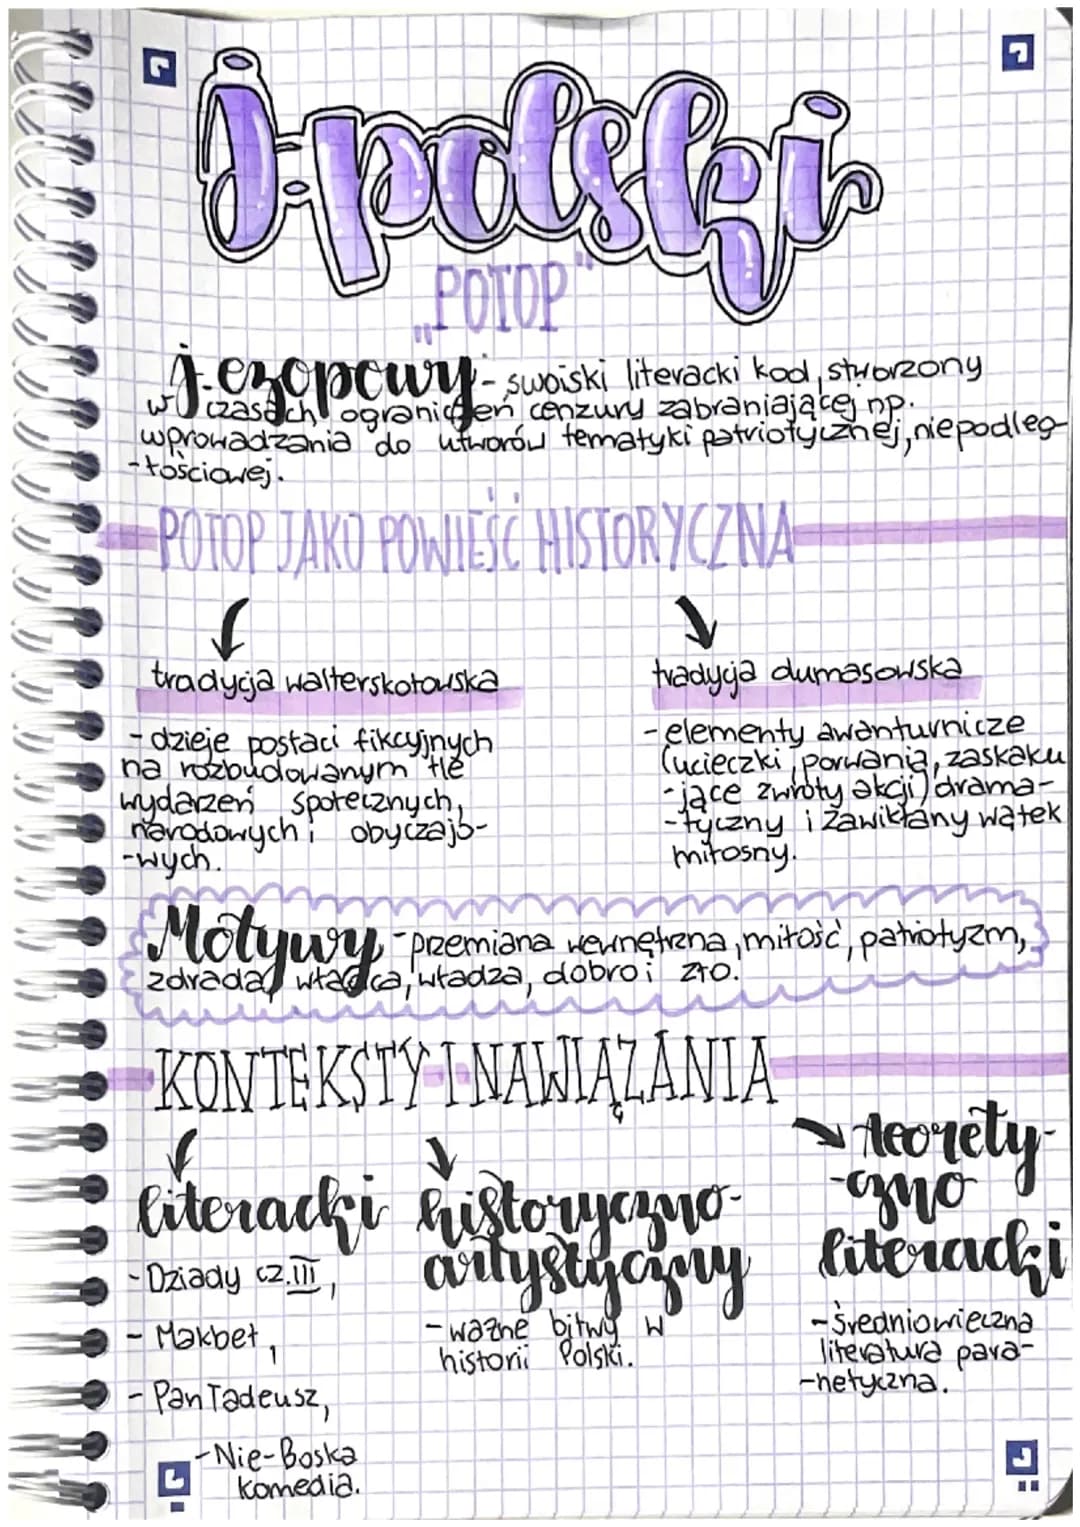 J.polski
„POTOP"
j.ezopowy - swoiski literacki kod, stworzony
w czasach ograniczeń cenzury zabraniającej np.
wprowadzania do utworów tematyki patriotycznej, niepodleg-
-łościowej.
POTOP JAKO POWIEŚĆ HISTORYCZNA
tradycja walterskotowska
- dzieje postaci fikcyjnych
na rozbudowanym tle
wydarzeń społecznych,
narodowych i obyczajo-
-wych.
tradycja dumasowska
- elementy awanturnicze
(ucieczki, porwania, zaskaku
-jące zwroty akcji) drama-
-tyczny i zawikłany wątek
miłosny.
Motywy - przemiana wewnętrzna, miłość, patriotyzm,
zdrada, władca, władza, dobro i zło.
KONTEKSTY I NAWIĄZANIA
literacki
- Dziady cz.III,
- Makbet,
- Pan Tadeusz,
- Nie-Boska
komedia.
historyczno-
artystyczny
- ważne bitwy w
historii Polski.
teorety-
-czno
literacki
- średniowieczna
literatura para-
-netyczna.